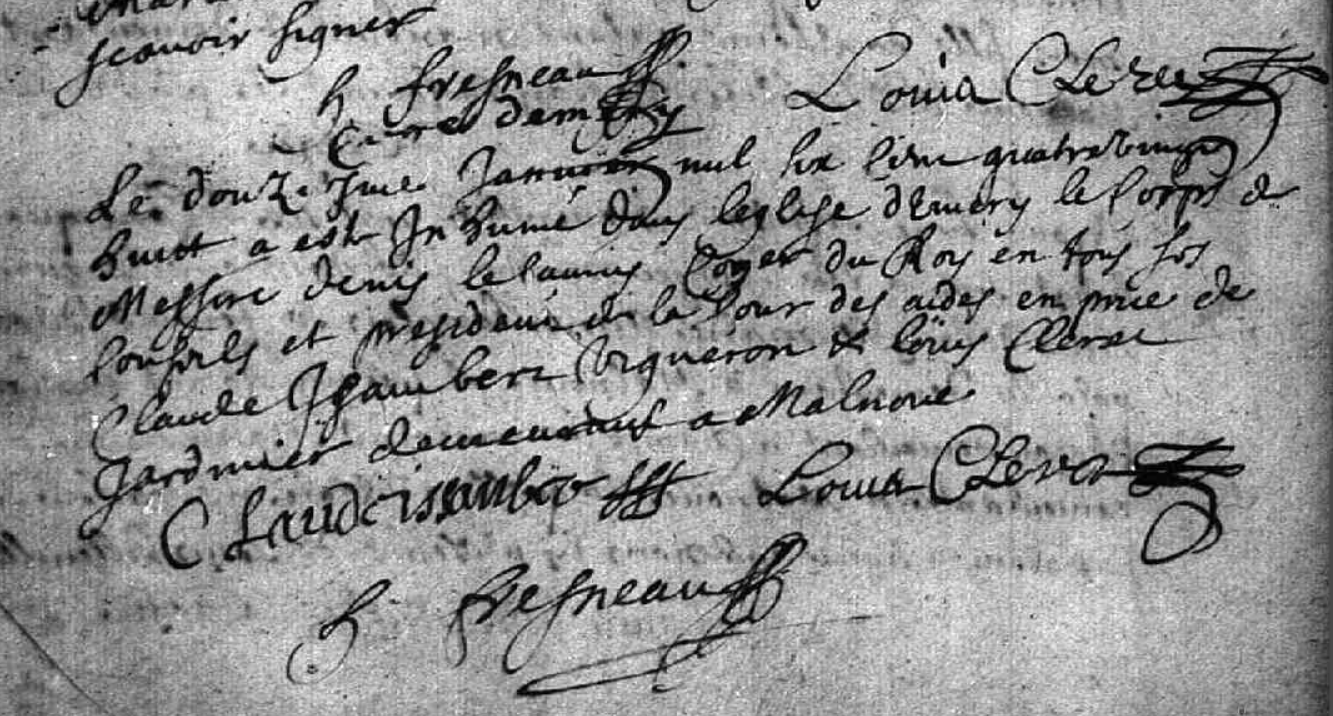 scavoir signer
h fresneau Louis Clerec
Curé demery
Le douzieme Janvier mil six cent quatrevingt
huict a este Inhumé dans leglise d'Emery le Corps de
Messire denis le Camus Coner du Roy en tous ses
Conseils et president de la Cour des aides en pnce de
Claude Isambert vigneron & Loüis Clerec
Jardinier demeurants a Malnoue
Claude isambert Louis Clerec
h fresneau